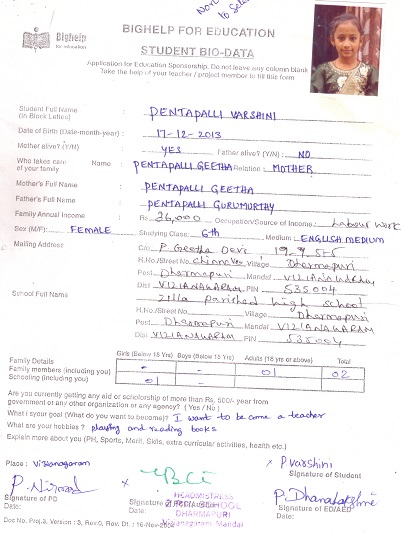 Bighelp
for education
BIGHELP FOR EDUCATION
STUDENT BIO-DATA
Application for Education Sponsorship. Do not leave any column blank
Take the help of your teacher / project member to fill this form
Student Full Name : PENTAPALLI VARSHINI
(in Block Letter)
Date of Birth (Date-month-year) : 17-12-2013
Mother alive? (Y/N) : YES Father alive? (Y/N) : NO
Who takes care Name : PENTAPALLI GEETHA Relation : MOTHER
of your family
Mother's Full Name : PENTAPALLI GEETHA
Father's Full Name : PENTAPALLI GURUMURTHY
Family Annual Income : Rs. 36,000 Occupation/Source of Income : Labour work
Sex (M/F) : FEMALE Studying Class : 6th Medium : ENGLISH MEDIUM
Mailing Address C/o P. Geetha Devi 19-9
H.No./Street No. Village Dharmapuri
Post Dharmapuri Mandal VIZIANAGARAM
Dist VIZIANAGARAM PIN 535004
School Full Name : Zilla parishad high school
H.No./Street No. Village Dharmapuri
Post Dharmapuri Mandal VIZIANAGARAM
Dist VIZIANAGARAM PIN 535004
Family Details Girls (Below 18 Yrs) Boys (Below 18 Yrs) Adults (18 yrs or above) Total
Family members (including you) - - 01 02
Schooling (including you) 01 -
Are you currently getting any aid or scholarship of more than Rs. 500/- year from
government or any other organization or any agency? ( Yes / No )
What is your goal (What do you want to become)? I want to be came a teacher
What are your hobbies? playing and reading books
Explain more about you (PH, Sports, Merit, Skills, extra curricular activities, health etc.)
Place : Vizianagaram
P. Varshini
Signature of Student
Signature of PD
Date:
HEADMISTRESS
DHARMAPURI
Vizianagaram Mandal
P. Dhanalakshmi
Signature of ED/AED
Date:
Doc No. Proj.3, Version : 3, Rev.0, Rev. Dt. : 16-Nov-